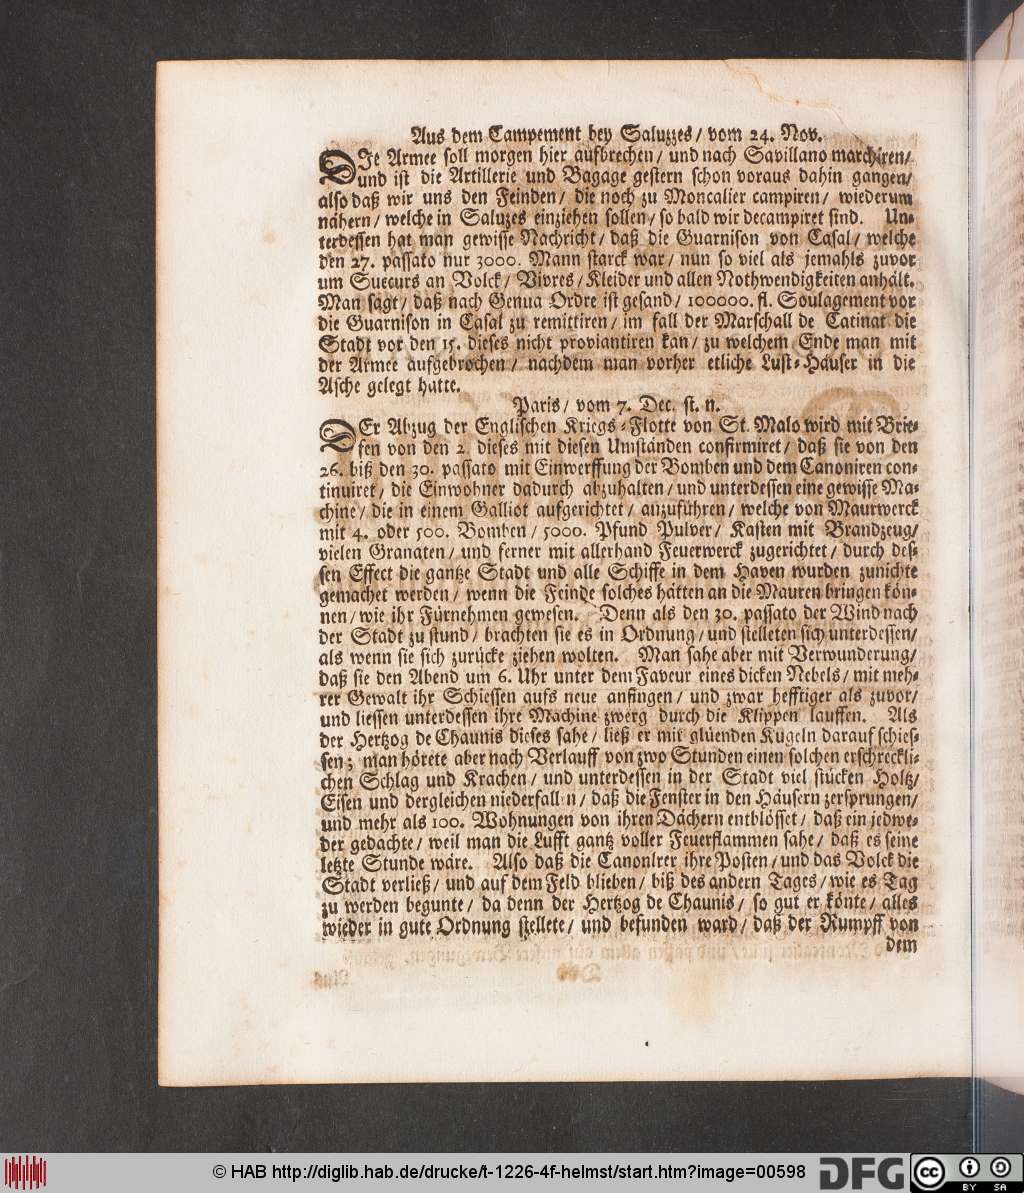 Aus dem Campement bey Saluzzes / vom 24. Nov.
DIe Armee soll morgen hier aufbrechen / und nach Savillano marchiren /
und ist die Artillerie und Bagage gestern schon voraus dahin gangen /
also daß wir uns den Feinden / die noch zu Moncalier campiren / wiederum
nähern / welche in Saluzes einziehen sollen / so bald wir decampiret sind. Un-
terdessen hat man gewisse Nachricht / daß die Guarnison von Casal / welche
den 27. passato nur 3000. Mann starck war / nun so viel als jemahls zuvor
um Suecurs an Volck / Vivres / Kleider und allen Nothwendigkeiten anhält.
Man sagt / daß nach Genua Ordre ist gesand / 100000. fl. Soulagement vor
die Guarnison in Casal zu remittiren / im fall der Marschall de Catinat die
Stadt vor den 15. dieses nicht proviantiren kan / zu welchem Ende man mit
der Armee aufgebrochen / nachdem man vorher etliche Lust-Häuser in die
Asche gelegt hatte.
Paris / vom 7. Dec. st. n.
DEr Abzug der Englischen Kriegs-Flotte von St. Malo wird mit Brie-
fen von den 2 dieses mit diesen Umständen confirmiret / daß sie von den
26. biß den 30. passato mit Einwerffung der Bomben und dem Canoniren con-
tinuiret / die Einwohner dadurch abzuhalten / und unterdessen eine gewisse Ma-
chine / die in einem Galliot aufgerichtet / anzuführen / welche von Maurwerck
mit 4. oder 500. Bomben / 5000. Pfund Pulver / Kasten mit Brandzeug /
vielen Granaten / und ferner mit allerhand Feuerwerck zugerichtet / durch des-
sen Effect die gantze Stadt und alle Schiffe in dem Haven wurden zunichte
gemachet werden / wenn die Feinde solches hätten an die Mauren bringen kön-
nen / wie ihr Fürnehmen gewesen. Denn als den 30. passato der Wind nach
der Stadt zu stund / brachten sie es in Ordnung / und stelleten sich unterdessen /
als wenn sie sich zurücke ziehen wolten. Man sahe aber mit Verwunderung /
daß sie den Abend um 6. Uhr unter dem Faveur eines dicken Nebels / mit meh-
rer Gewalt ihr Schiessen aufs neue anfingen / und zwar hefftiger als zuvor /
und liessen unterdessen ihre Machine zwerg durch die Klippen lauffen. Als
der Hertzog de Chaunis dieses sahe / ließ er mit glüenden Kugeln darauf schies-
sen; man hörete aber nach Verlauff von zwo Stunden einen solchen erschreckli-
chen Schlag und Krachen / und unterdessen in der Stadt viel stücken Holtz /
Eisen und dergleichen niederfallen / daß die Fenster in den Häusern zersprungen /
und mehr als 100. Wohnungen von ihren Dächern entblösset / daß ein jedwe-
der gedachte / weil man die Lufft gantz voller Feuerflammen sahe / daß es seine
letzte Stunde wäre. Also daß die Canonirer ihre Posten / und das Volck die
Stadt verließ / und auf dem Feld blieben / biß des andern Tages / wie es Tag
zu werden begunte / da denn der Hertzog de Chaunis / so gut er könte / alles
wieder in gute Ordnung stellete / und befunden ward / daß der Rumpff von
dem
© HAB http://diglib.hab.de/drucke/t-1226-4f-helmst/start.htm?image=00598
DFG
cc BY SA